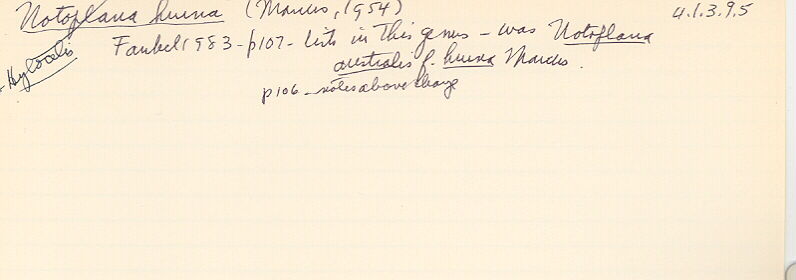 Notoplana huina (Marcus, 1954) 4.1.3.9.5
Faubel 1983 - p107 - lists in this genus - was Notoplana
- Hylocelis
australis f. huina Marcus.
p106 - notes above change